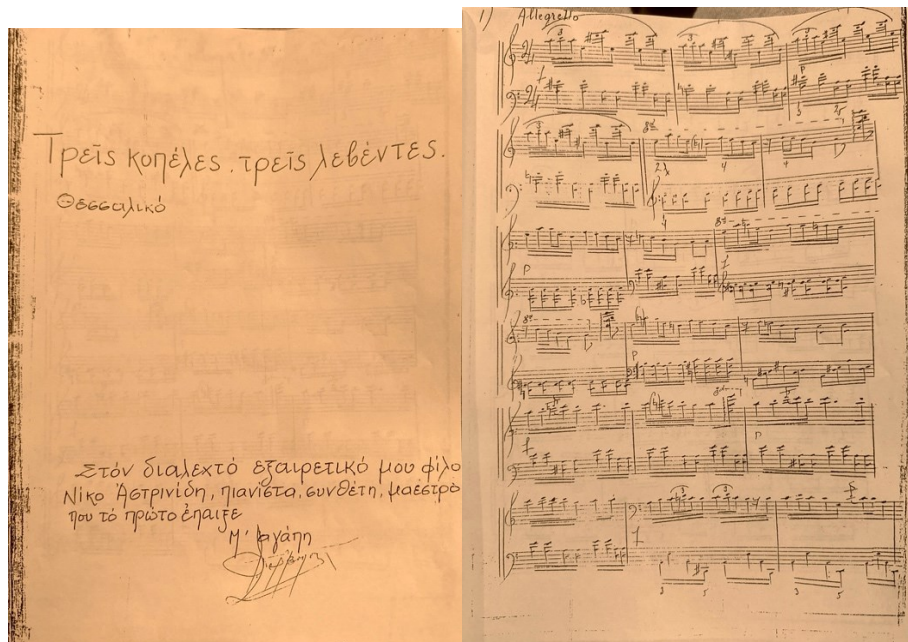 Τρεῖς κοπέλες. τρεῖς λεβέντες.
Θεσσαλικό
Στόν διαλεχτό εξαιρετικό μου φίλο
Νίκο Ἀστρινίδη, πιανίστα, συνθέτη, μαέστρο
που τό πρώτο έπαιξε
Μ' αγάπη
1) Allegretto